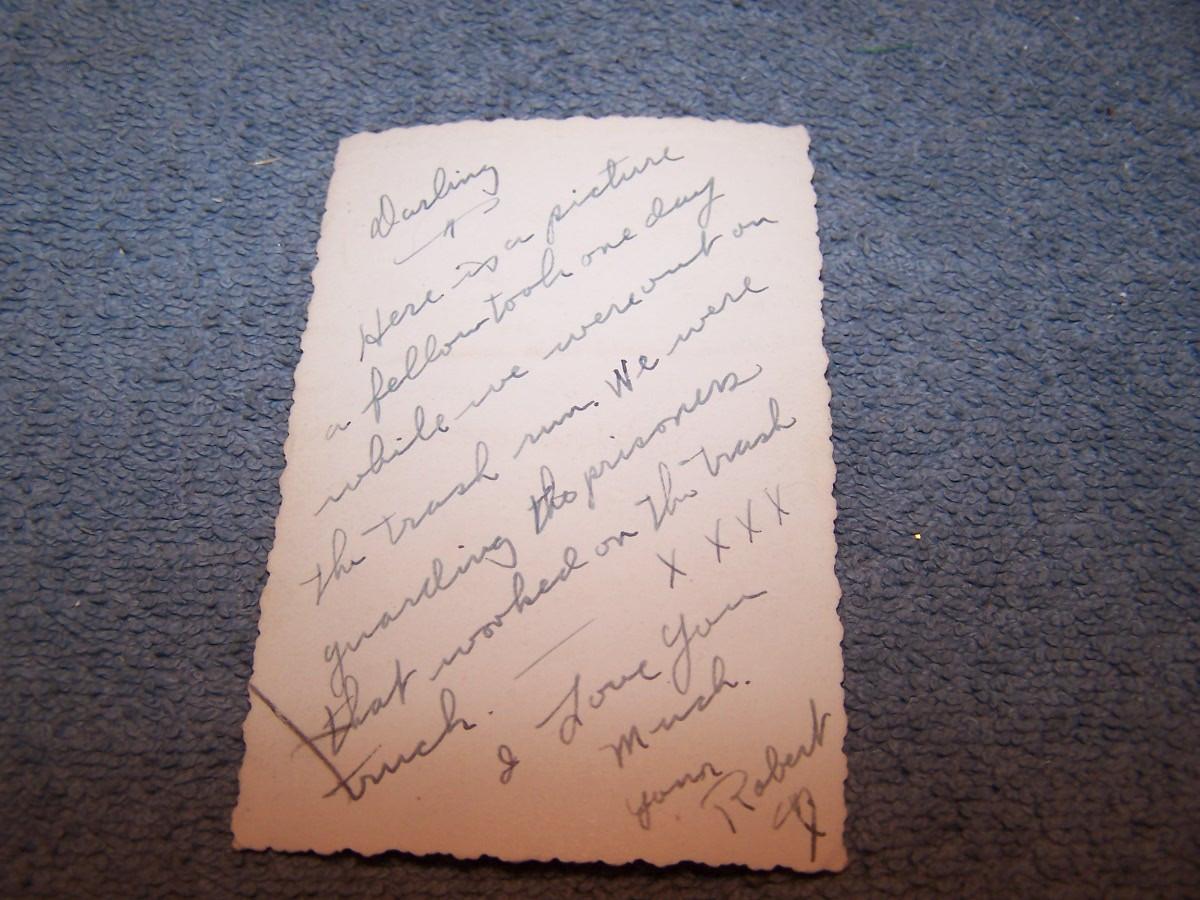 Darling
Here is a picture
a fellow took one day
while we were out on
the trash run. We were
guarding the prisoners
that worked on the trash
truck. — X X X X
I Love You
Much.
your
Robert
X